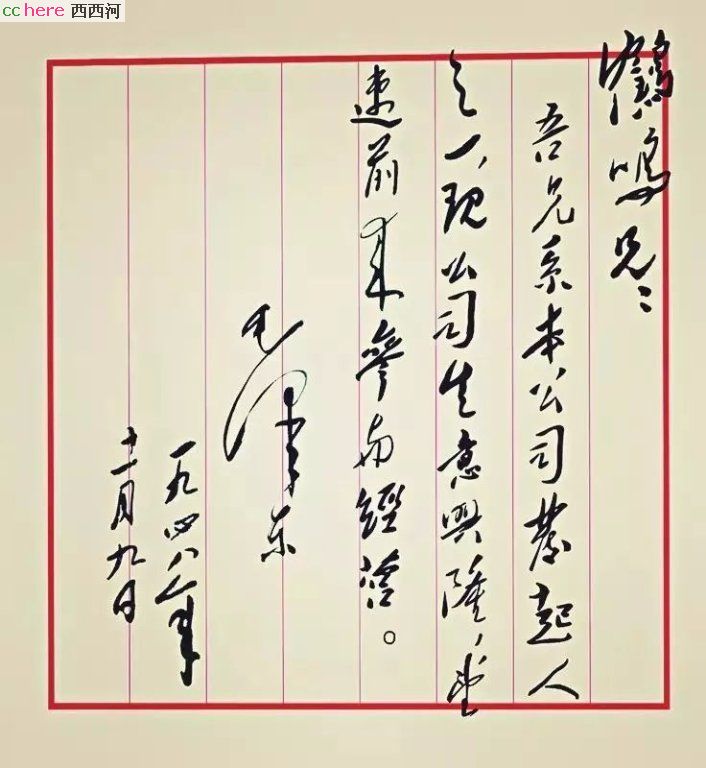 cchere 西西河
鶴鳴兄:
吾兄系本公司發起人
之一,现公司生意興隆,望
速前来參与經营。
毛澤东
一九四八年
十一月九日